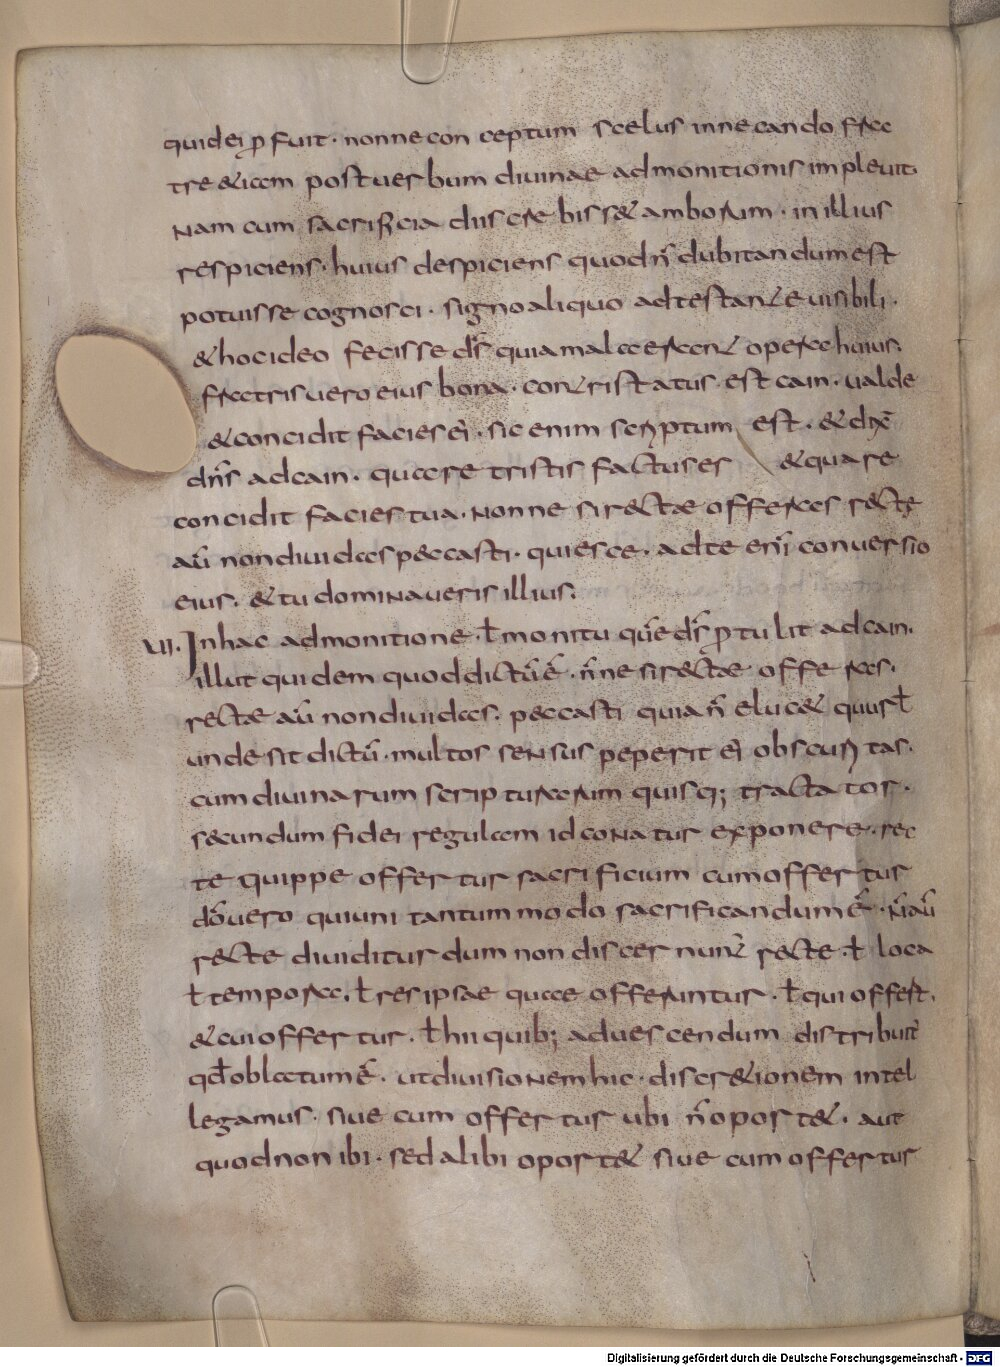 quidei ꝓfuit · nonne con ceptum scelus in necando fra
tre &iam post verbum divinae admonitionis implevit·
Nam cum sacrificia discreviss& amborum · in illius
respiciens · huius despiciens quod n̄ dubitandum est
potuisse cognosci · signo aliquo adtestante visibili ·
& hoc ideo fecisse d̄s quia mala erant opera huius.
fratris vero eius bona · contristatus est cain · valde
& concidit facies ei᾿ · sic enim scriptum est · & dix̄
dn̄s ad cain · quare tristis factus es & quare
concidit facies tua · Nonne si rectae offeras recte
aū non dividas peccasti · quiesce · ad te eni᷒ conversio
eius · & tu domiNaveris illius.
VII · In hac admonitione · ł monitu quē d̄s ꝓtulit ad cain.
illut quidem quod dictū ē · n̄ne si rectae offeras.
rectae aū non dividas. peccasti quia n̄ eluc& quur ł
unde sit dictū · multos seNsus peperit ei᾿ obscuritas.
cum divinarum scripturarum quisq; tractator.
secundum fidei regulam id coNatur exponere · rec
te quippe offertur sacrificium cum offertur
dō vero qui uni tantummodo sacrificandum ē · n̄ aū
recte dividitur dum non discernunt̄ recte · ł loca
ł tempora. ł res ipsae quae offeruntur · ł qui offert.
& cui offertur · ł hii quib; ad vescendum distribuit᾿
qđ oblatum ē. ut divisioNem hic · discr&ionem intel
legamus · sive cum offertur ubi n̄ oport& · aut
quod non ibi · sed alibi oport& sive cum offertur
Digitalisierung gefördert durch die Deutsche Forschungsgemeinschaft - DFG